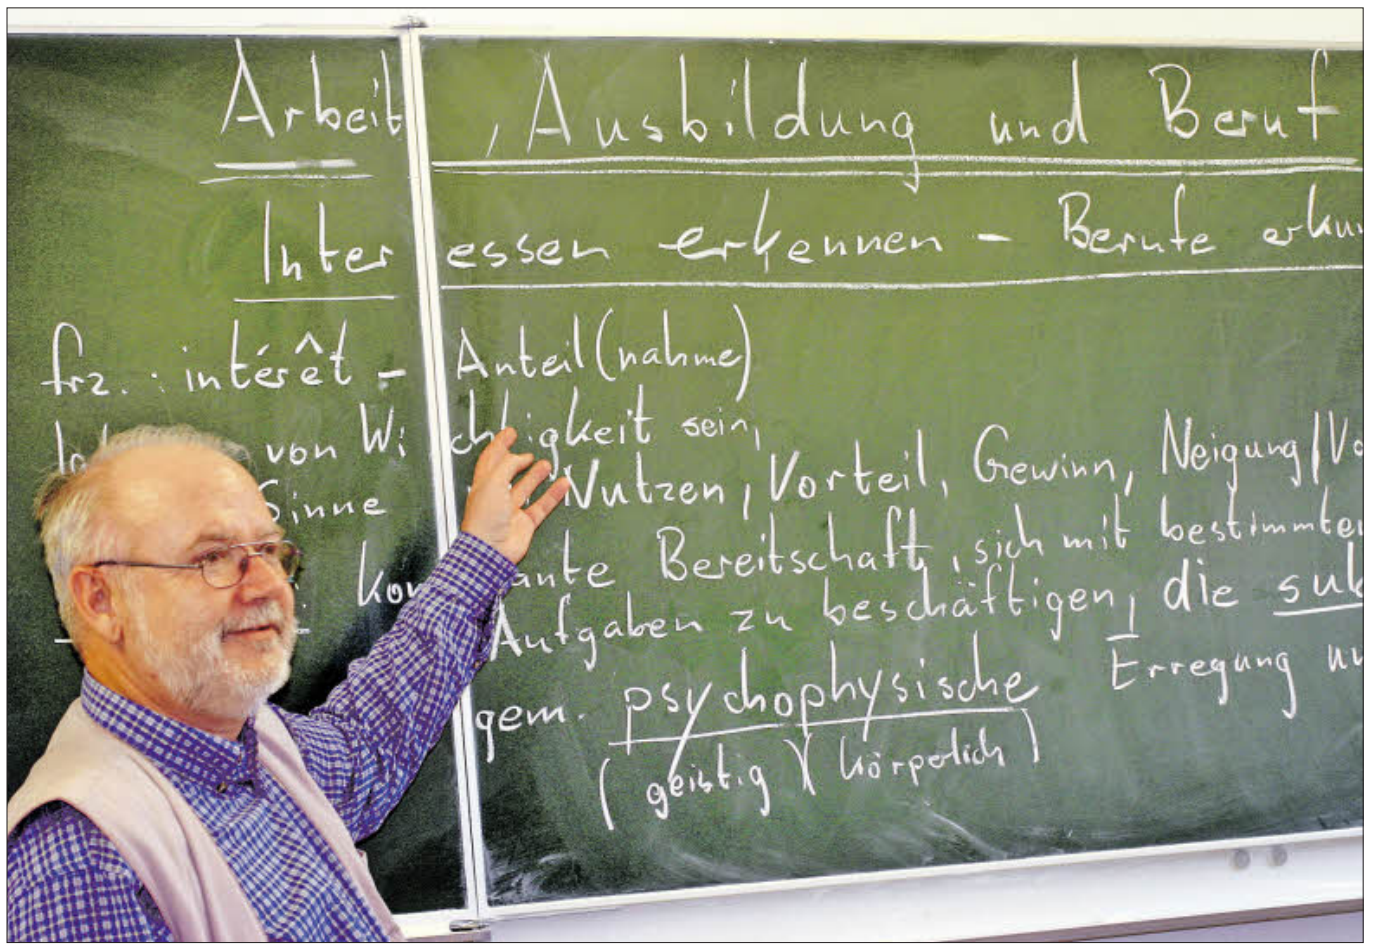 Arbeit, Ausbildung und Beruf
Interessen erkennen - Berufe erkun
frz.: intérêt - Anteil(nahme)
von Wichtigkeit sein,
Sinne Nutzen, Vorteil, Gewinn, Neigung/Vo
kon ante Bereitschaft, sich mit bestimmte
Aufgaben zu beschäftigen, die sub
gem. psychophysische Erregung un
(geistig)(körperlich)